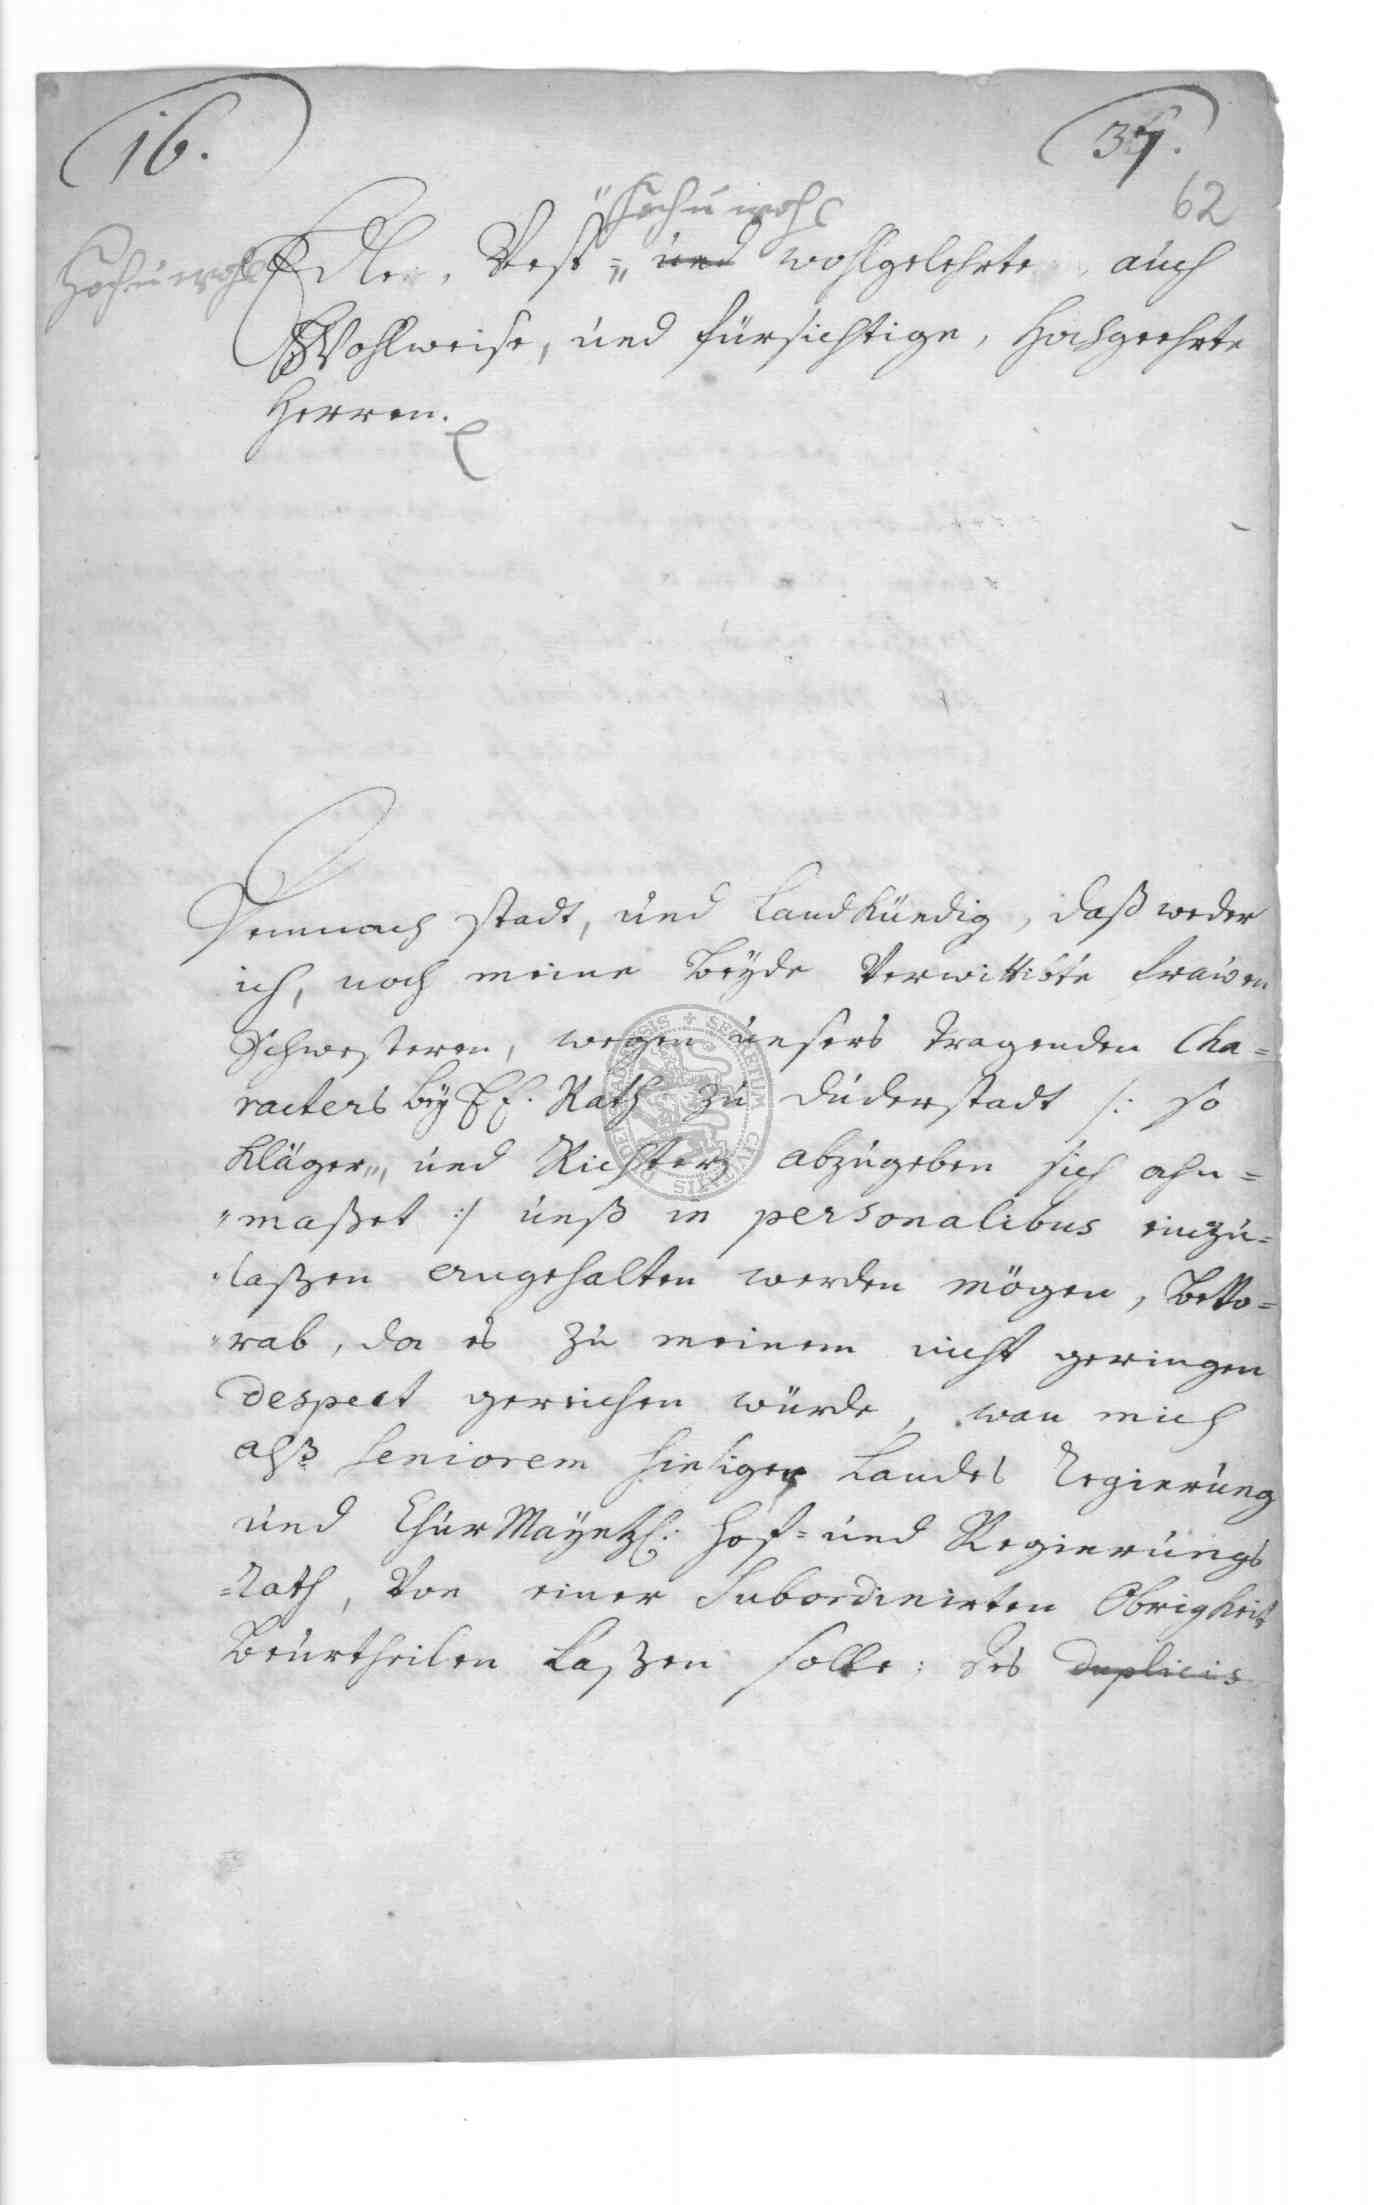 16.
37.
62
Hoch u wohl
Hoch u wohl Edle, Vest = und wohlgelehrte, auch
Wohlweise, und fürsichtige, Hochgeehrte
Herren.
Demnach stadt, und Landkündig, daß weder
ich, noch meine beyde Verwittibte frawen
Schwesteren, wegen unsers tragenden Cha=
racters bey E. E. Rath zu Duderstadt /: so
Kläger, und Richter abzugeben sich ahn=
maßet :/ unß in personalibus einzu=
laßen angehalten werden mögen, bevo=
rab, da es zu meinem nicht geringen
despect gereichen würde, wan mich
alß Seniorem hiesiger Landes Regierung
und ChurMayntzl: Hof= und Regierungs
=Rath, Von einer Subordinirten Obrigkeit
beurtheilen Laßen solle; des duplicis
SECRETUM CIVITATIS